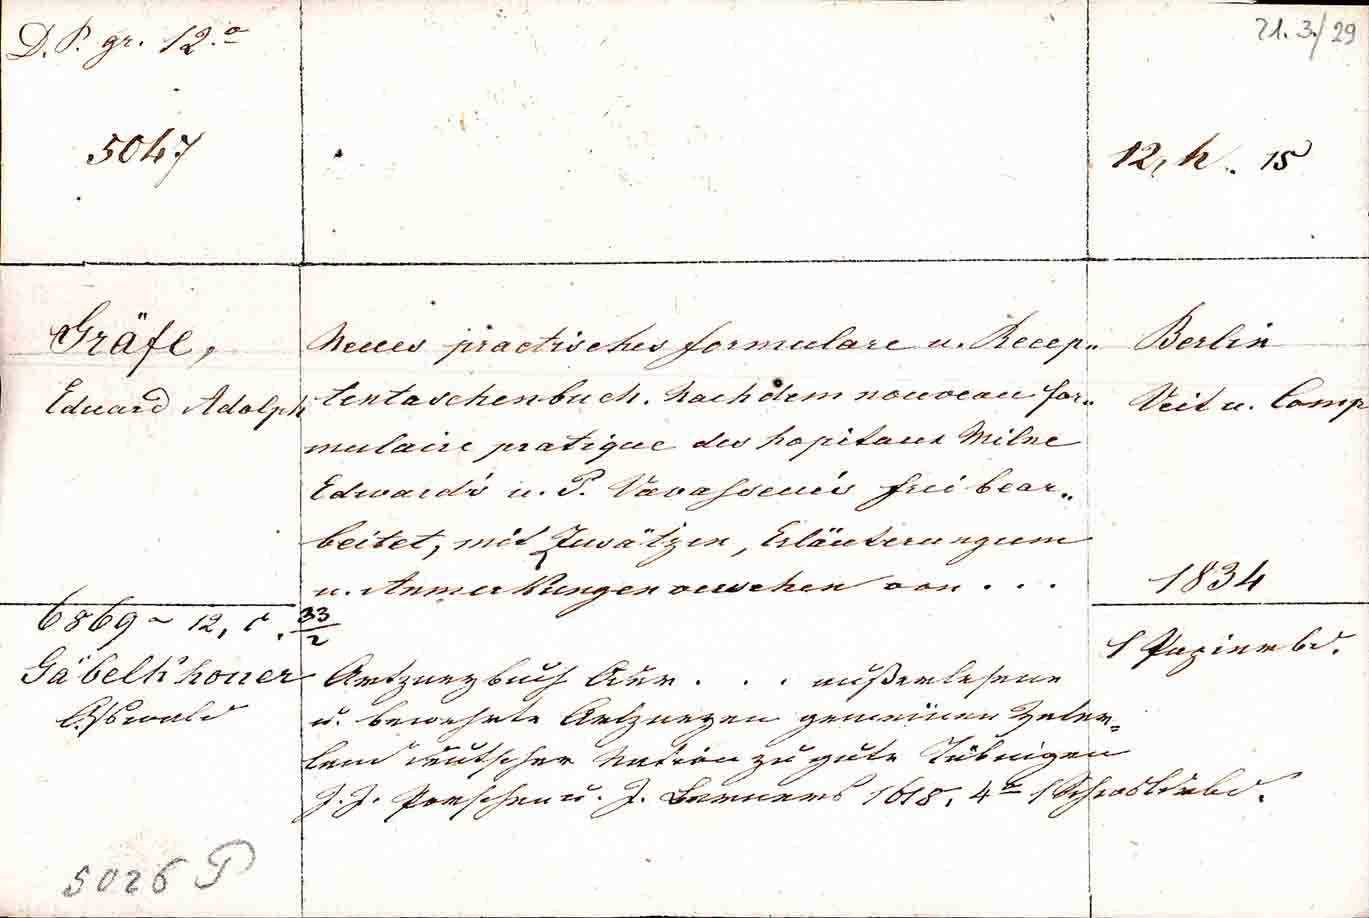 D. P. gr. 12.º
21. 3./29
5047
12, h. 15
Gräfe,
Eduard Adolph
Neues practisches formulare u. Recep„
tentaschenbuch. Nach dem nouveau for„
mulaire pratique des hopitaux Milne
Edwards's u. P. Vavasseur's frei bear„
beitet, mit Zusätzen, Erläuterungen
u. Anmerkungen versehen von . . .
Berlin
Veit u. Comp
1834
6869 ~ 12, c. 33/2
1 Papierbd.
Gäbelkhouer
Oswald
Artzneybuch . . . außerlesene
u. bewehrte Artzneyen gemeinen Vater=
land deutscher Nation zu gute Tübingen
J. J. u. J. 1618. 4º 1
5026 P